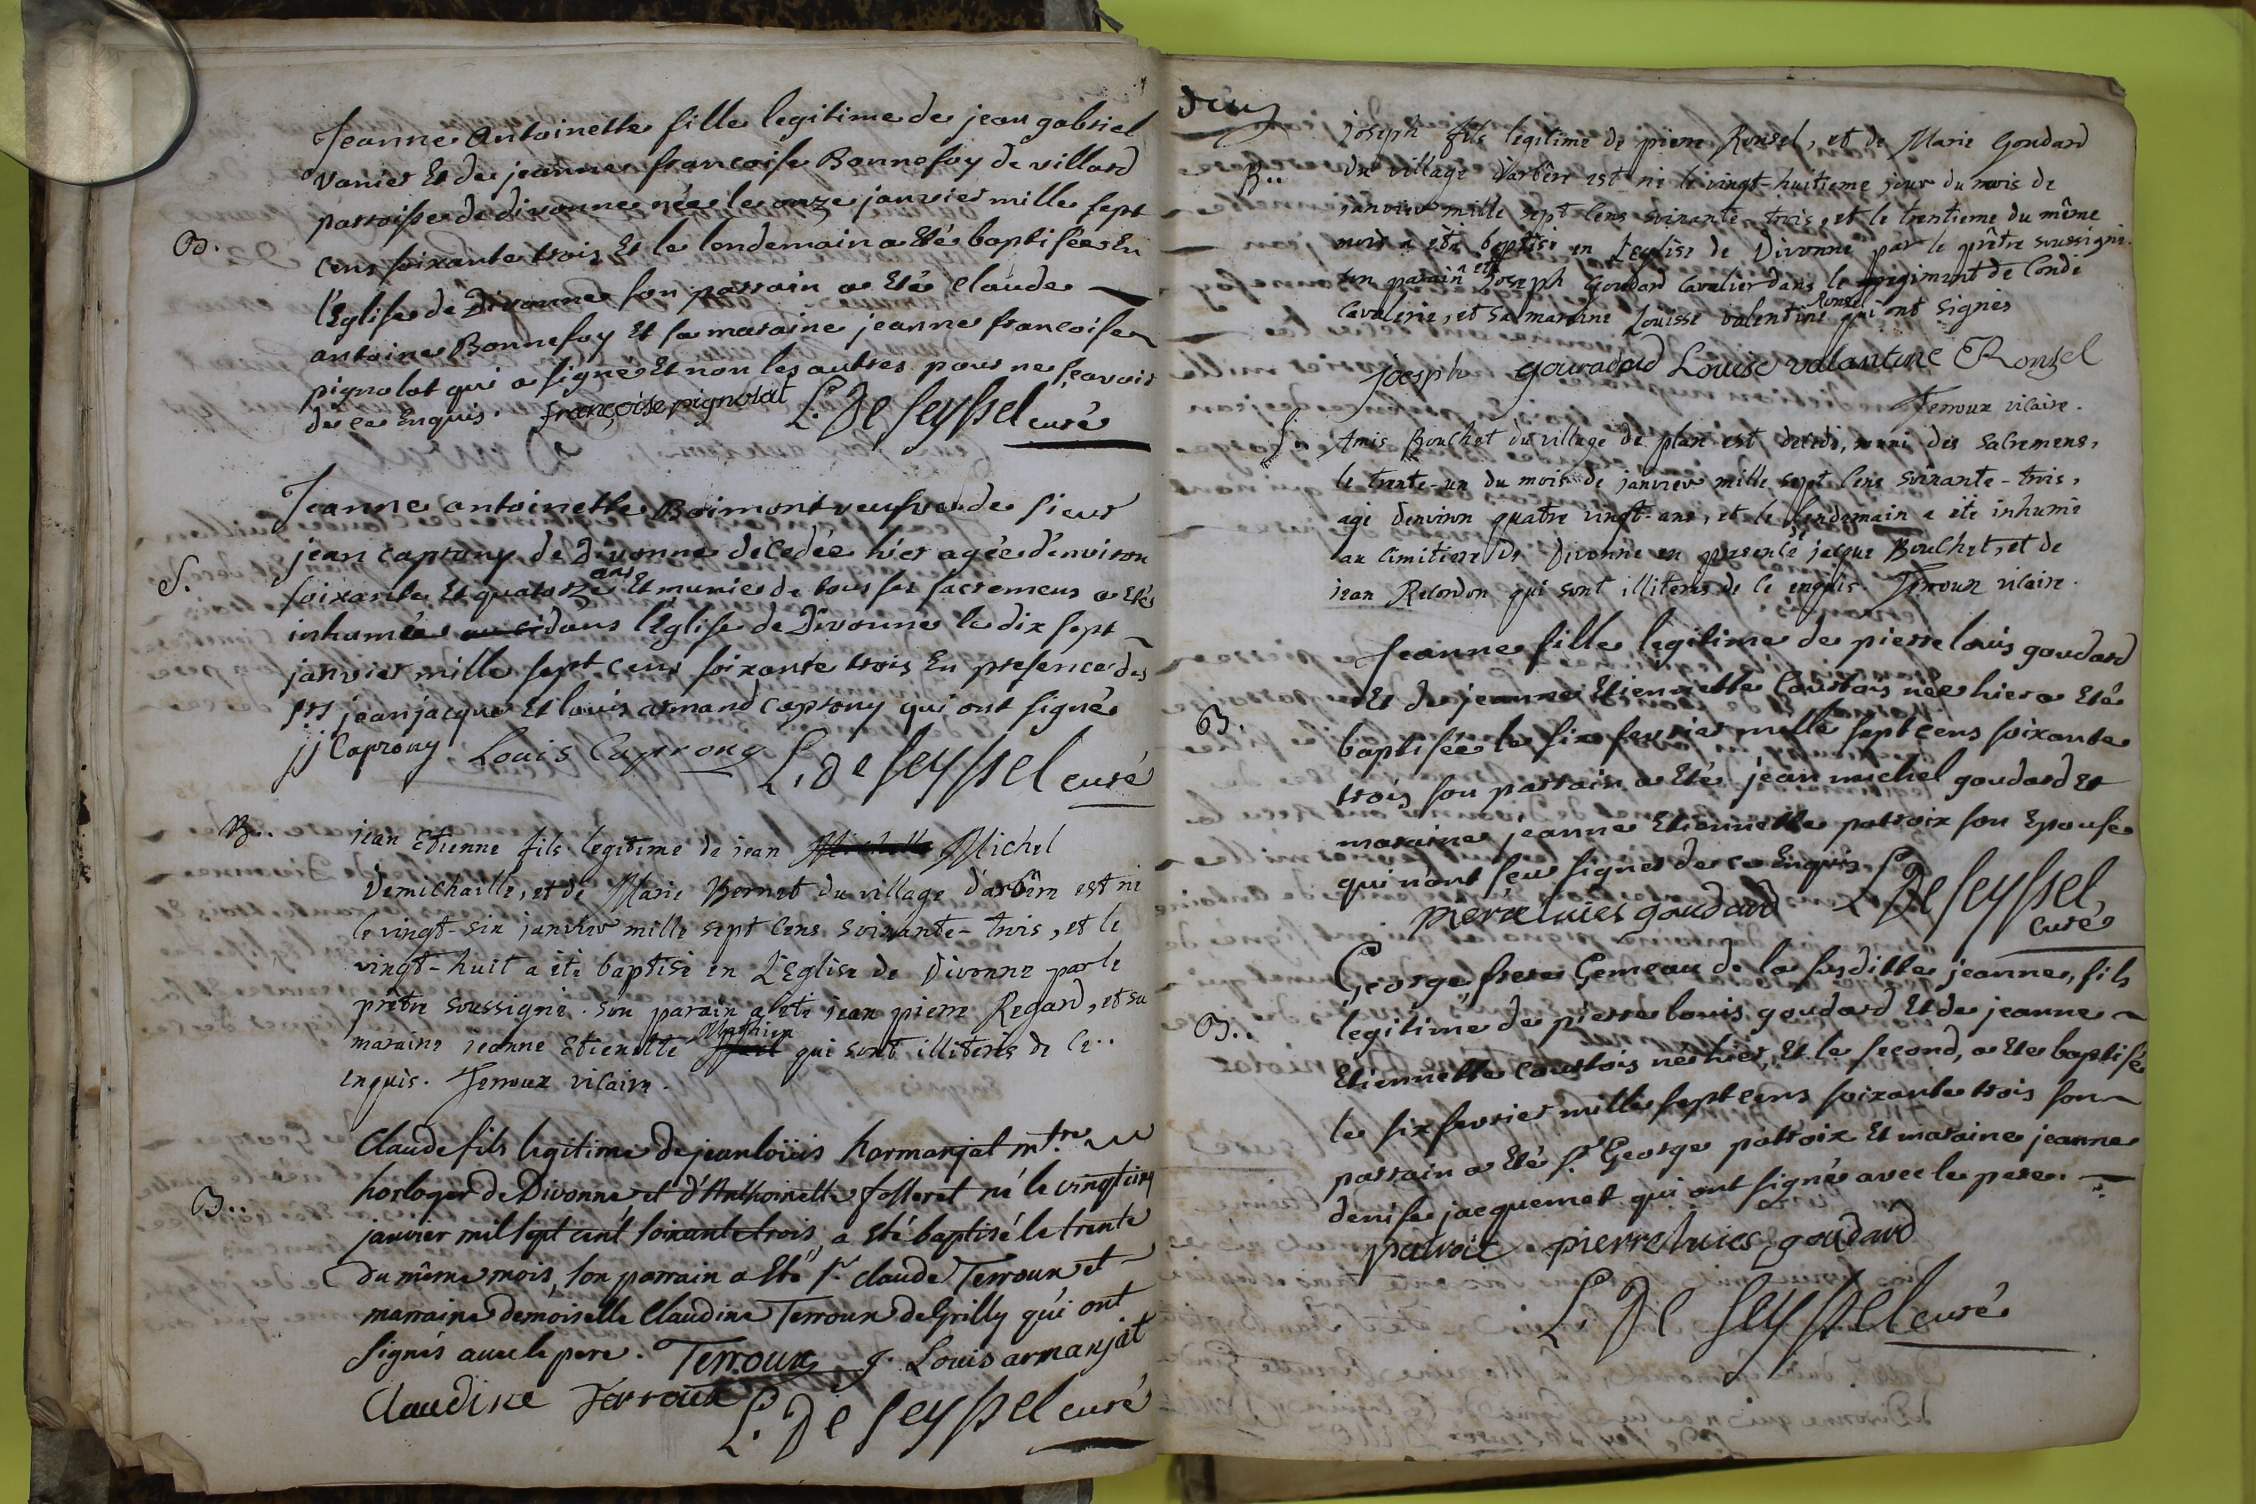 Jeanne Antoinette fille legitime de jean gabriel
vanier Et de jeanne francoise Bonnefoy de villard
parroisse de divonne née le onze janvier mille sept
B. cens soixante trois Et le lendemain a Eté baptisée En
l'Eglise de Divonne son parrain a Eté claude
antoine Bonnefoy Et sa maraine jeanne francoise
pignolat qui a signé Et non les autres pour ne sçavoir
de ce Enquis. françoise pignolat L. De Seyssel curé
Jeanne antoinette Boimont veufve de sieur
jean caprony de Divonne decedée hier agée d'environ
S. soixante Et quatorze ans Et munie de tous ses sacremens a Eté
inhumée dans l'Eglise de Divonne le dix sept
janvier mille sept cens soixante trois En presence des
srs jean jacque Et louis armand caprony qui ont signé
jj Caprony Louis Caprony L. De Seyssel curé
B.. jean Etienne fils legitime de jean Michel
Vemichaille, et de Marie Bernet du village d'arbêre est né
le vingt-six janvier mille sept cens soixante-trois, et le
vingt-huit a été baptisé en L'Eglise de Divonne par le
prêtre soussigné. son parain a été jean pierre Regard, et sa
maraine jeanne Etienette qui sont illiterés de ce..
enquis. Terroux vicaire.
Claude fils legitime de jean loüis harmanjat mtre
horloger de Divonne et d'Anthoinette fosseret né le vingt cinq
B.. janvier mil sept cent soixante trois, a Eté baptisé le trente
du même mois, son parrain a Eté sr. claude Terroux et
marraine demoiselle Claudine Terroux de Grilly qui ont
signés avec le pere. Terroux J. Louis armanjat
Claudine Terroux L. De Seyssel curé
deux
joseph fils legitime de pierre Ronsel, et de Marie Goudard
B.. du village d'arbêre est né le vingt-huitieme jour du mois de
janvier mille sept cens soixante-trois, et le trentieme du même
mois a été baptisé en L'eglise de Divonne par le prêtre soussigné.
son parain a été Joseph Goudard Cavalier dans le regiment de Condé
Cavalerie, et sa maraine Louisse valentine Ronsel qui ont signés
joesph gouradad Louise valantine Ronsel
Terroux vicaire.
S. Amis Bouchet du village de plan est decedé, muni des sacremens,
le trente-un du mois de janvier mille sept cens soixante-trois,
agé d'environ quatre vingt-ans, et le lendemain a été inhumé
au cimitiere de Divonne en presence de jacque Bouchet, et de
jean Recordon qui sont illiterés de ce enquis. Terroux vicaire.
Jeanne fille legitime de pierre louis goudard
Et de jeanne Etiennette Courtois née hier a Eté
B. baptisée le six fevrier mille sept cens soixante
trois son parrain a Eté jean michel goudard Et
maraine jeanne Etiennette patroix son Epouse
qui n'ont sceu signer de ce Enquis
pierre luies goudard L. De Seyssel
curé
George frere Gemeau de la susditte jeanne, fils
B.. legitime de pierre louis goudard Et de jeanne
Etiennette Courtois né hier, Et le second, a Eté baptisé
le six fevrier mille sept cens soixante trois son
parrain a Eté sr. George patroix Et maraine jeanne
denise jacquemet qui ont signé avec le pere.
patroix pierre luies goudard
L. De Seyssel curé